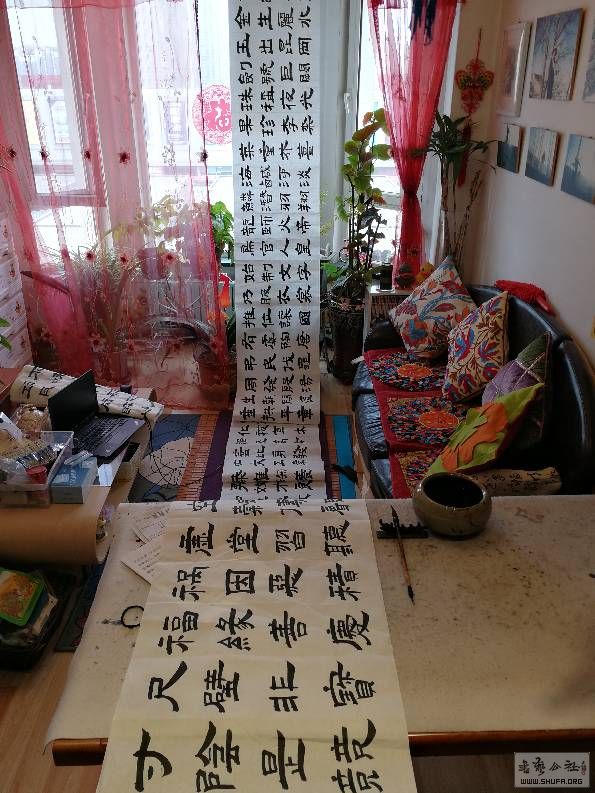 金生麗水
玉出昆岡
劍號巨闕
珠稱夜光
果珍李柰
菜重芥薑
海鹹河淡
鱗潛羽翔
龍師火帝
鳥官人皇
始制文字
乃服衣裳
推位讓國
有虞陶唐
弔民伐罪
周發殷湯
坐朝問道
垂拱平章
虛堂習聽
禍因惡積
福緣善慶
尺璧非寶
寸陰是競
WWW.SHUFA.ORG